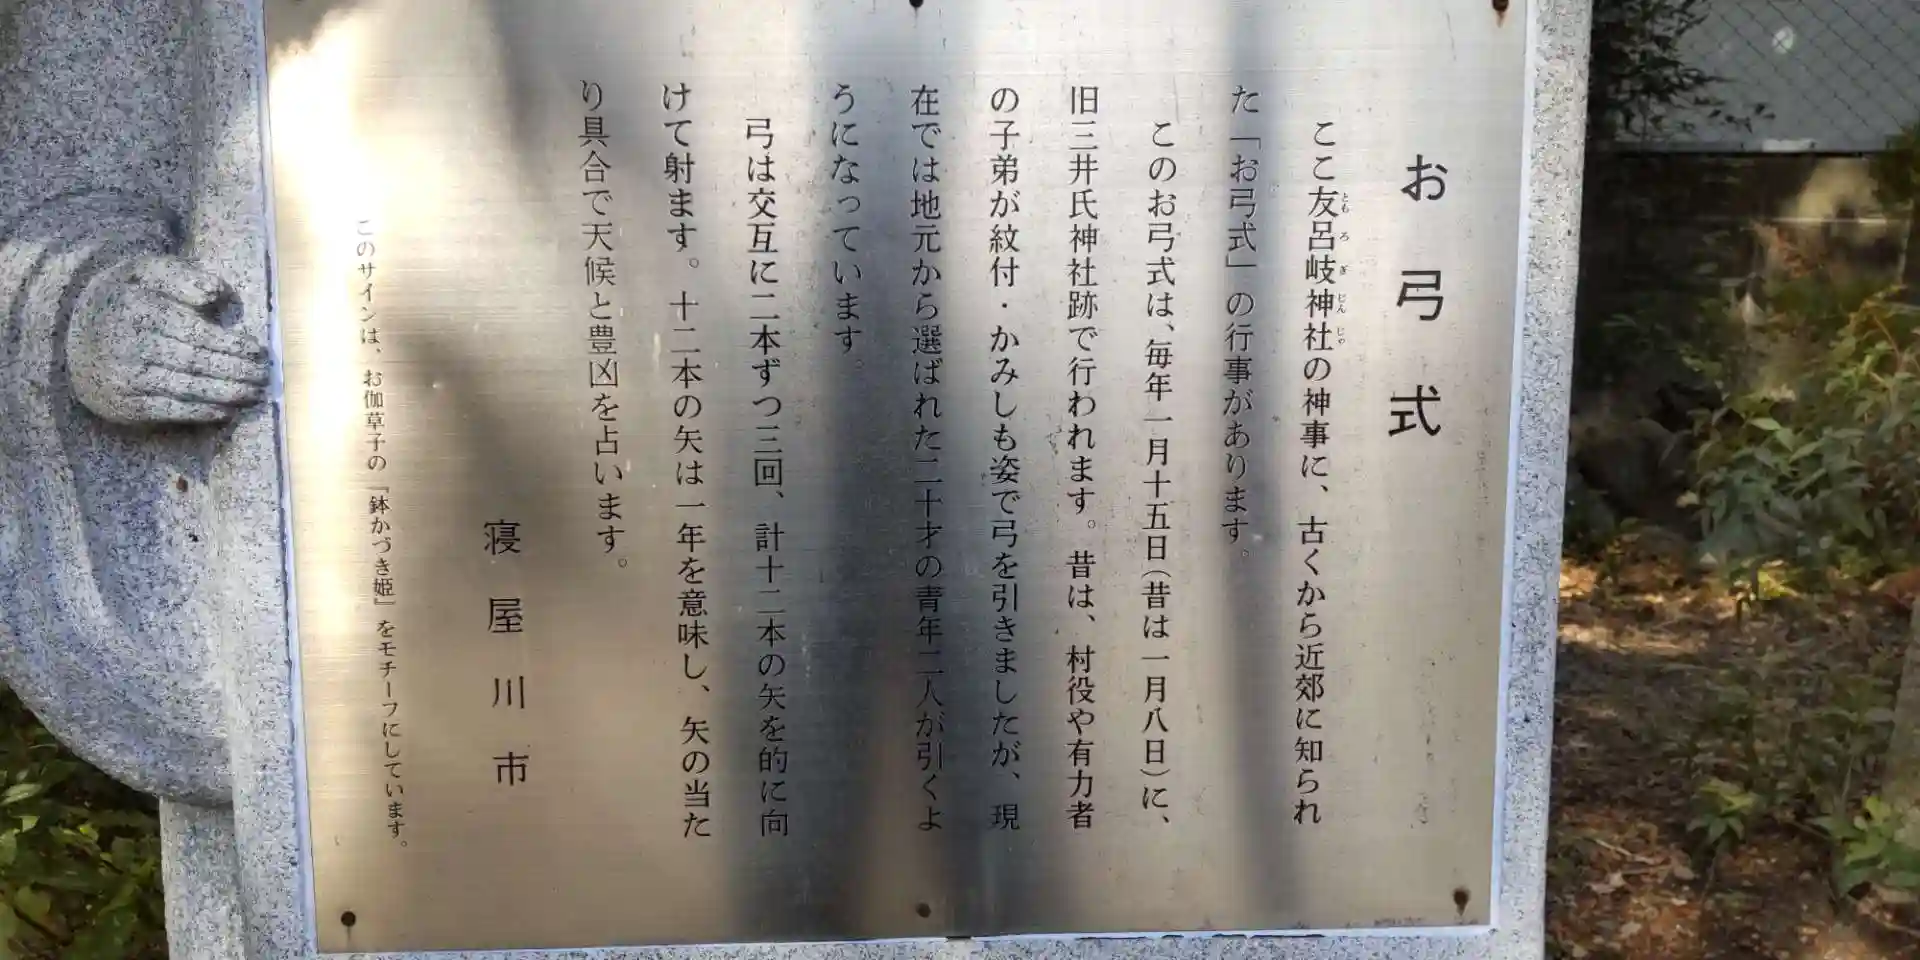 お弓式
ここ友呂岐神社の神事に、古くから近郊に知られ
とも ろ ぎ じん じゃ
た「お弓式」の行事があります。
このお弓式は、毎年一月十五日(昔は一月八日)に、
旧三井氏神社跡で行われます。昔は、村役や有力者
の子弟が紋付・かみしも姿で弓を引きましたが、現
在では地元から選ばれた二十才の青年二人が引くよ
うになっています。
弓は交互に二本ずつ三回、計十二本の矢を的に向
けて射ます。十二本の矢は一年を意味し、矢の当た
り具合で天候と豊凶を占います。
寝屋川市
このサインは、お伽草子の「鉢かづき姫」をモチーフにしています。